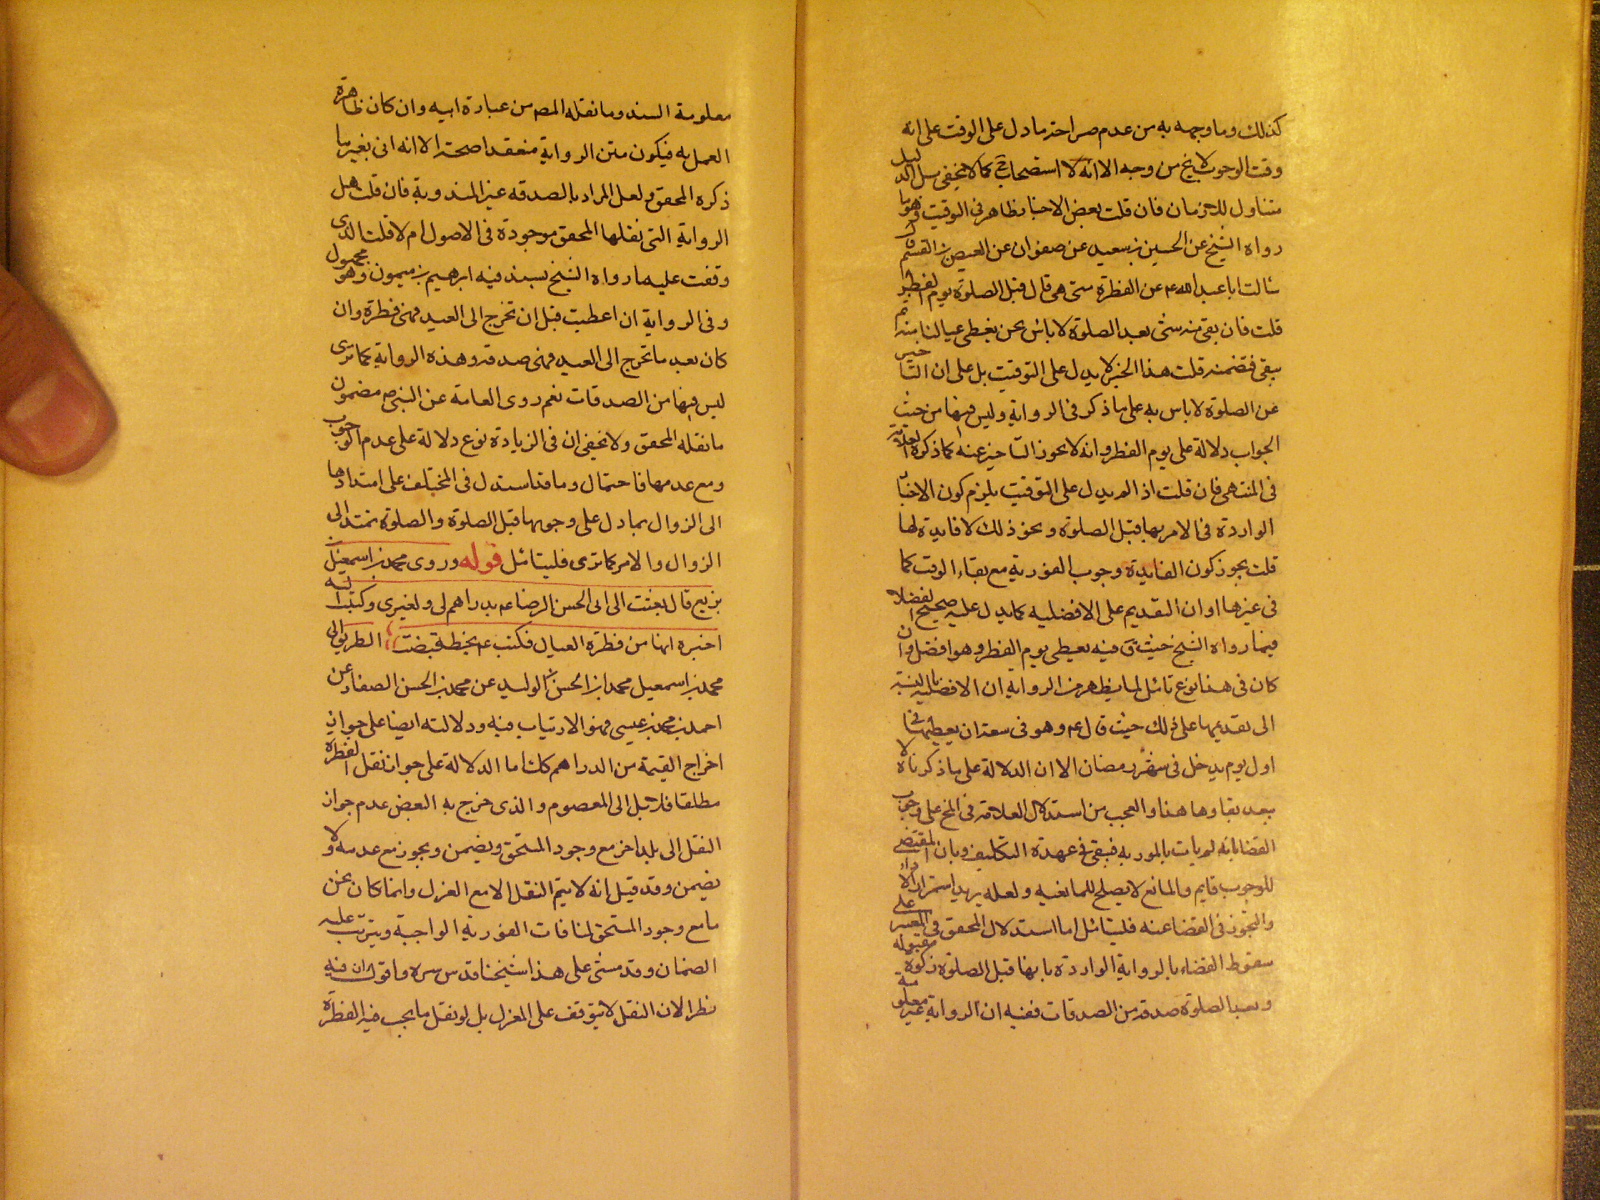 كذلك وما وجهه به من عدم صراحة ما دل على الوقت على انه
وقت الوجوب لا يخ من وجه الا انه لا استصحاب كما لا يخفى بل الدليل
متناول للزمان فان قلت بعض الاخبار ظاهر فى التوقيت وهو ما
رواه الشيخ عن الحسين بن سعيد عن صفوان عن العيص بن القسم قال
سئالت ابا عبد الله ع عن الفطرة متى هى قال قبل الصلوة يوم الفطر
قلت فان بقى منه شئ بعد الصلوة لا باس نحن نعطى عيالنا منه ثم
يبقى فنقسمه قلت هذا الخبر لا يدل على التوقيت بل على ان التاخير
عن الصلوة لا باس به على ما ذكر فى الرواية وليس فيها من حيث
الجواب دلالة على يوم الفطر وانه لا يجوز التاخير عنه كما ذكره العلامة
فى المنتهى فان قلت اذا لم يدل على التوقيت يلزم كون الاخبار
الواردة فى الامر بها قبل الصلوة ونحو ذلك لا فايدة لها
قلت يجوز كون الفايدة وجوب الفورية مع بقاء الوقت كما
فى غيرها او ان التقديم على الافضلية كما يدل عليه صحيح الفضلا
فيما رواه الشيخ حيث فيه يعطى يوم الفطر وهو افضل وان
كان فى هذا نوع تائل لما يظهر من الرواية ان الافضلية بالنسبة
الى تقديمها على ذلك حيث قال ع وهو فى سعة ان يعطيها فى
اول يوم يدخل فى شهر رمضان الا ان الدلالة على ما ذكرناه لا
بعد بقاوها هذا والعجب من استدلال العلامة فى المخ على وجوب
القضا بانه لم يات بالمور به فبقى فى عهدة التكليف وبان المقتضى
للوجوب قايم والمانع لا يصلح للمانعية ولعله يريد استمرار الامر
والتجوز فى القضا عنه فليتائل اما استدلال المحقق فى المعتبر على
سقوط القضاء بالرواية الواردة بانها قبل الصلوة زكوة مقبولة
وبعد الصلوة صدقة من الصدقات ففيه ان الرواية غير معلومة
معلومة السند وما نقله المص من عبارة ابيه وان كان ظاهرة
العمل به فيكون متن الرواية منعقدا صحة الا انه اتى بغير ما
ذكره المحقق ولعل المراد بالصدقه غير المندوبة فان قلت هل
الرواية التى نقلها المحقق موجودة فى الاصول ام لا قلت الذى
وقفت عليه ما رواه الشيخ بسند فيه ابرهيم بن ميمون وهو مجهول
وفى الرواية ان اعطيت قبل ان تخرج الى العيد فهى فطرة وان
كان بعد ما تخرج الى العيد فهى صدقة وهذه الرواية كما ترى
ليس فيها من الصدقات نعم روى العامة عن النبى ص مضمون
ما نقله المحقق ولا يخفى ان فى الزيادة نوع دلالة على عدم الوجوب
ومع عدمها فاحتمال وما قد استدل فى المختلف على امتدادها
الى الزوال بما دل على وجوبها قبل الصلوة والصلوة تمتد الى
الزوال والامر كما ترى فليتائل قوله وروى محمد بن اسمعيل بن
بزيع قال بعثت الى ابى الحسن الرضا ع بدراهم لى ولغيرى وكتبت اليه
اخبره انها من فطرة العيال فكتب ع بخطه قبضت الطريق الى
محمد بن اسمعيل محمد بن الحسن بن الوليد عن محمد بن الحسن الصفار عن
احمد بن محمد بن عيسى فهو لا ارتياب فيه ودلالته ايضا على جواز
اخراج القيمة من الدراهم كك اما الدلالة على جواز نقل الفطرة
مطلقا فلا بل الى المعصوم والذى خرج به البعض عدم جواز
النقل الى بلد اخر مع وجود المستحق ويضمن ويجوز مع عدمه ولا
يضمن وقد قيل انه لا يتم النقل الا مع العزل وانما كان نحن
ما مع وجود المستحق لمنافات الفورية الواجبة ويترتب عليه
الضمان وقد مشى على هذا شيخنا قدس سره واقول ان فيه
نظرا لان النقل لا يتوقف على العزل بل لو نقل ما يجب فيه الفطرة